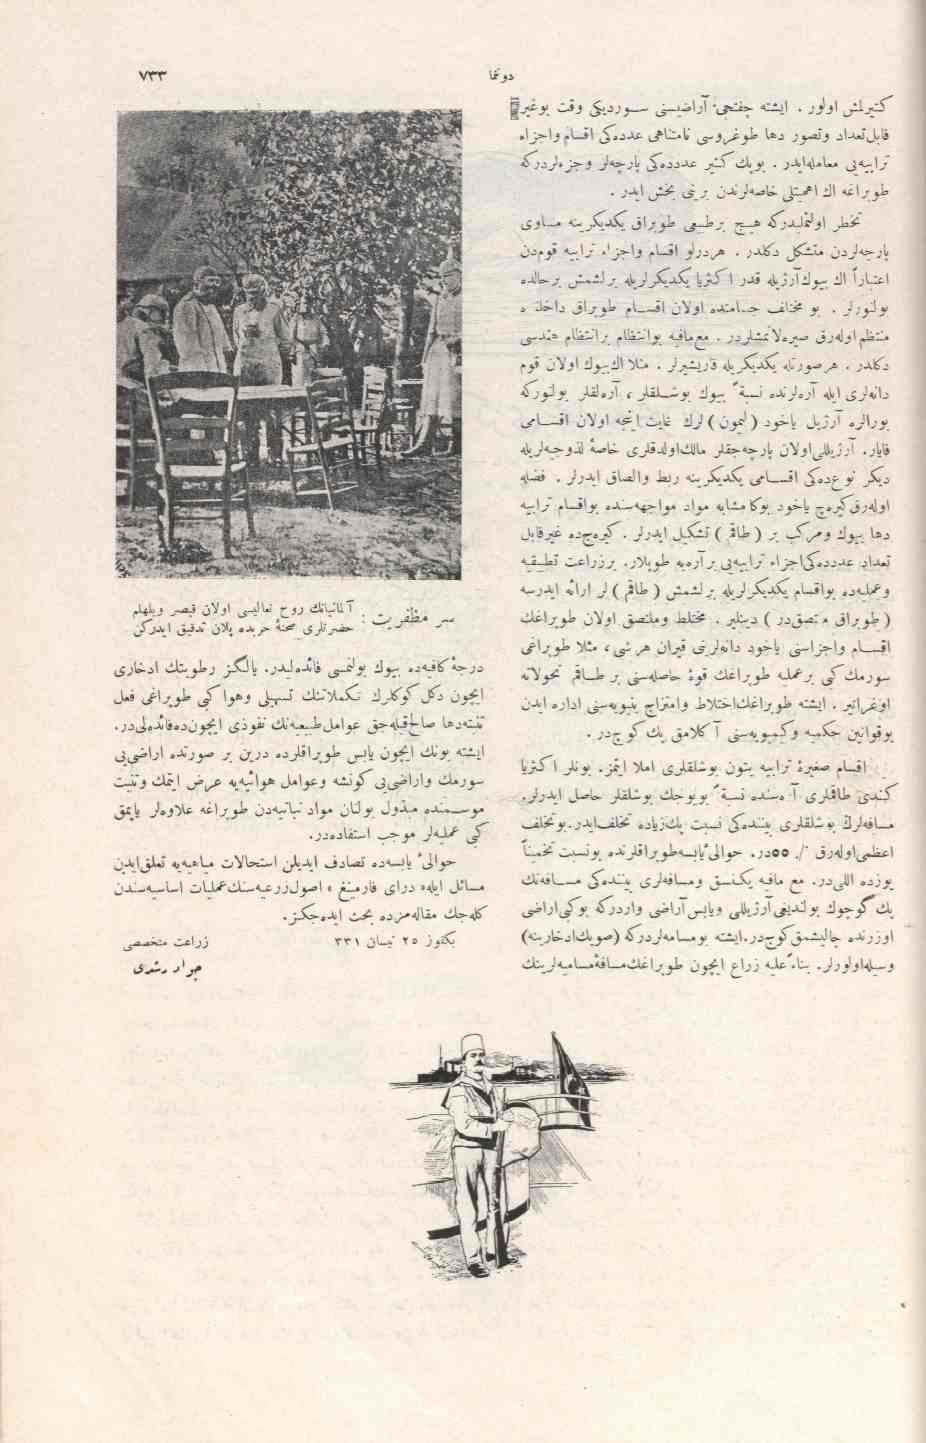 دوننما
٧٣٣
كتيرلمش اولور . ايشته چفتجی ٔ آراضيسنی سـوردیكی وقت بوغیر
قابل تعداد وتصور دها طوغروسی نامتناهی عدده كی اقسام واجزاء
ترابیه یی معامله ایدر . بو پك كثیر عددده كی پارچه لر وجزء لردركه
طوبراغه اك اهمیتلی خاصه لرندن برینی بخش ایدر .
تخطر اولنملیدركه هیچ برطبیعی طوبراق یكدیكرینه مساوی
پارچه لردن متشكل دكلدر . هردرلو اقسام واجزاء ترابیه قومدن
اعتباراً اك بیوك آرژیله قدر اكثریا یكدیكرلریله برلشمش برحالده
بولنورلر . بو مختلف جسامتده اولان اقسـام طوبراق داخلنده
منتظم اوله رق صیره لانمشلردر . مع مافیه بوانتظام برانتظام هندسی
دكلدر . هرصورتله یكدیكریله قاریشیرلر . مثلا اك بیوك اولان قوم
دانه لری ایله آره لرنده نسبةً بیوك بوشـلقلر ، آره لقلر بولنوركه
بورالره آرژیل یاخود ( لیمون ) لرك غایت اینجه اولان اقسـامی
قاپار . آرژیللی اولان پارچه جقلر مالك اولدقلری خاصهٔ لذوجیه لریله
دیكر نوعده كی اقسـامی یكدیكرینه ربط والصاق ایدرلر . فضله
اوله رق كیره ج یاخود بوكا مشابه مواد مواجهه سنده بواقسام ترابیه
دها بیوك ومركب بر ( طاقم ) تشكیل ایدرلر . كیره ج ده غیرقابل
تعداد عددده كی اجزاء ترابیه یی برآره یه طوپلار. برزراعت تطبیقیه
وعملیه ده بواقسام یكدیكرلریله برلشمش ( طاقم ) لر ارائه ایدرسه
( طوبراق ملتصقدر ) دینلیر . مختلط وملتصق اولان طوبراغك
اقسـام واجزاسنی یاخود دانه لرینی قیران هرشی ، مثلا طوبراغی
سورمك كبی برعملیه طوبراغك قوهٔ حاصله سنی بر طـاقم تحولاته
اوغراتیر . ایشته طوبراغك اختلاط وامتزاج بنیویه سنی اداره ایدن
بوقوانین حكمیه وكیمیویه سنی آكلامق پك كوجدر .
اقسام صغیرهٔ ترابیه بتون بوشلقلری املا ایتمز. بونلر اكثریا
كندی طاقملری آره سنده نسبةً بویوجك بوشلقلر حاصل ایدرلر.
مسافه لرك بوشلقلری بیننده كی نسبت پك زیاده تخلف ایدر. بو تخلف
اعظمی اوله رق ٪ ٥٥ در. حوالی ٔ یابسه طوبراقلرنده بونسبت تخمیناً
یوزده اللی در. مع مافیه یك نسق ومسافه لری بیننده كی مسـافه نك
پك كوچوك بولندیغی آرژیللی ویابس آراضی واردركه بوكبی اراضی
اوزرنده چالیشمق كوجدر. ایشته بومسامه لردركه (صویك ادخارینه)
وسیله اولورلر. بناءً علیه زراع ایچون طوبراغك مسافهٔ مسامیه لرینك
سر مظفریت : آلمانیانك روح تعالیسی اولان قیصر ویلهلم
حضرتلری صحنهٔ حربده پلان تدقیق ایدركن
درجهٔ كافیه ده بیوك بولنمسی فائده لیدر. یالكز رطوبتك ادخاری
ایچون دكل كوكلرك تكملاتنك تسهیلی وهوا كبی طوبراغی فعل
تنبته دها صالح قیله جق عوامل طبیعیه نك نفوذی ایچون ده فائده لیدر.
ایشته بونك ایچون یابس طوبراقلرده درین بر صورتده اراضی یی
سورمك واراضی یی كونشه وعوامل هوائیه یه عرض ایتمك وتنبت
موسـمنده مبذول بولنان مواد نباتیه دن طوبراغه علاوه لر یاپمق
كبی عملیه لر موجب استفاده در.
حوالی ٔ یابسه ده تصادف ایدیلن استحالات میاهیه یه تعلق ایدن
مسائل ایله « درای فارمینغ » اصول زرعیه سنك عملیات اساسیه سندن
كله جك مقاله مزده بحث ایده جكز.
بكقوز ٢٥ نیسان ٣٣١
زراعت متخصصی
جواد رشدی